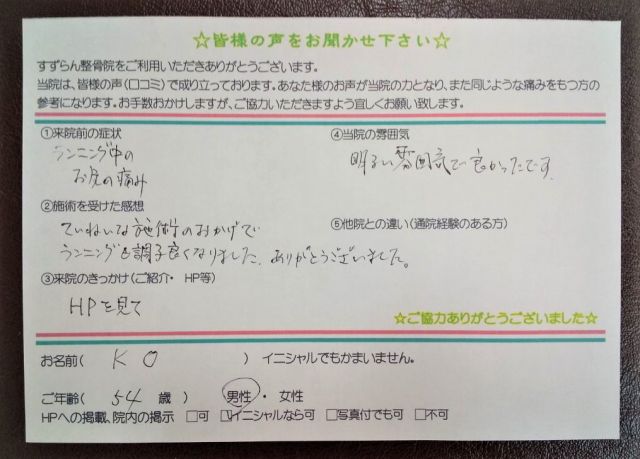 ☆皆様の声をお聞かせ下さい☆
すずらん整骨院をご利用いただきありがとうございます。
当院は、皆様の声(口コミ)で成り立っております。あなた様のお声が当院の力となり、また同じような痛みをもつ方の
参考になります。お手数おかけしますが、ご協力いただきますよう宜しくお願い致します。
①来院前の症状
ランニング中の
お尻の痛み
②施術を受けた感想
ていねいな施術のおかげで
ランニングも調子良くなりました。ありがとうございました。
③来院のきっかけ(ご紹介・ HP等)
HPを見て
④当院の雰囲気
明るい雰囲気で良かったです。
⑤他院との違い(通院経験のある方)
☆ご協力ありがとうございました☆
お名前( K O ) イニシャルでもかまいません。
ご年齢( 54 歳 ) 男性 ・ 女性
HPへの掲載、院内の掲示 □可 ☑イニシャルなら可 □写真付でも可 □不可